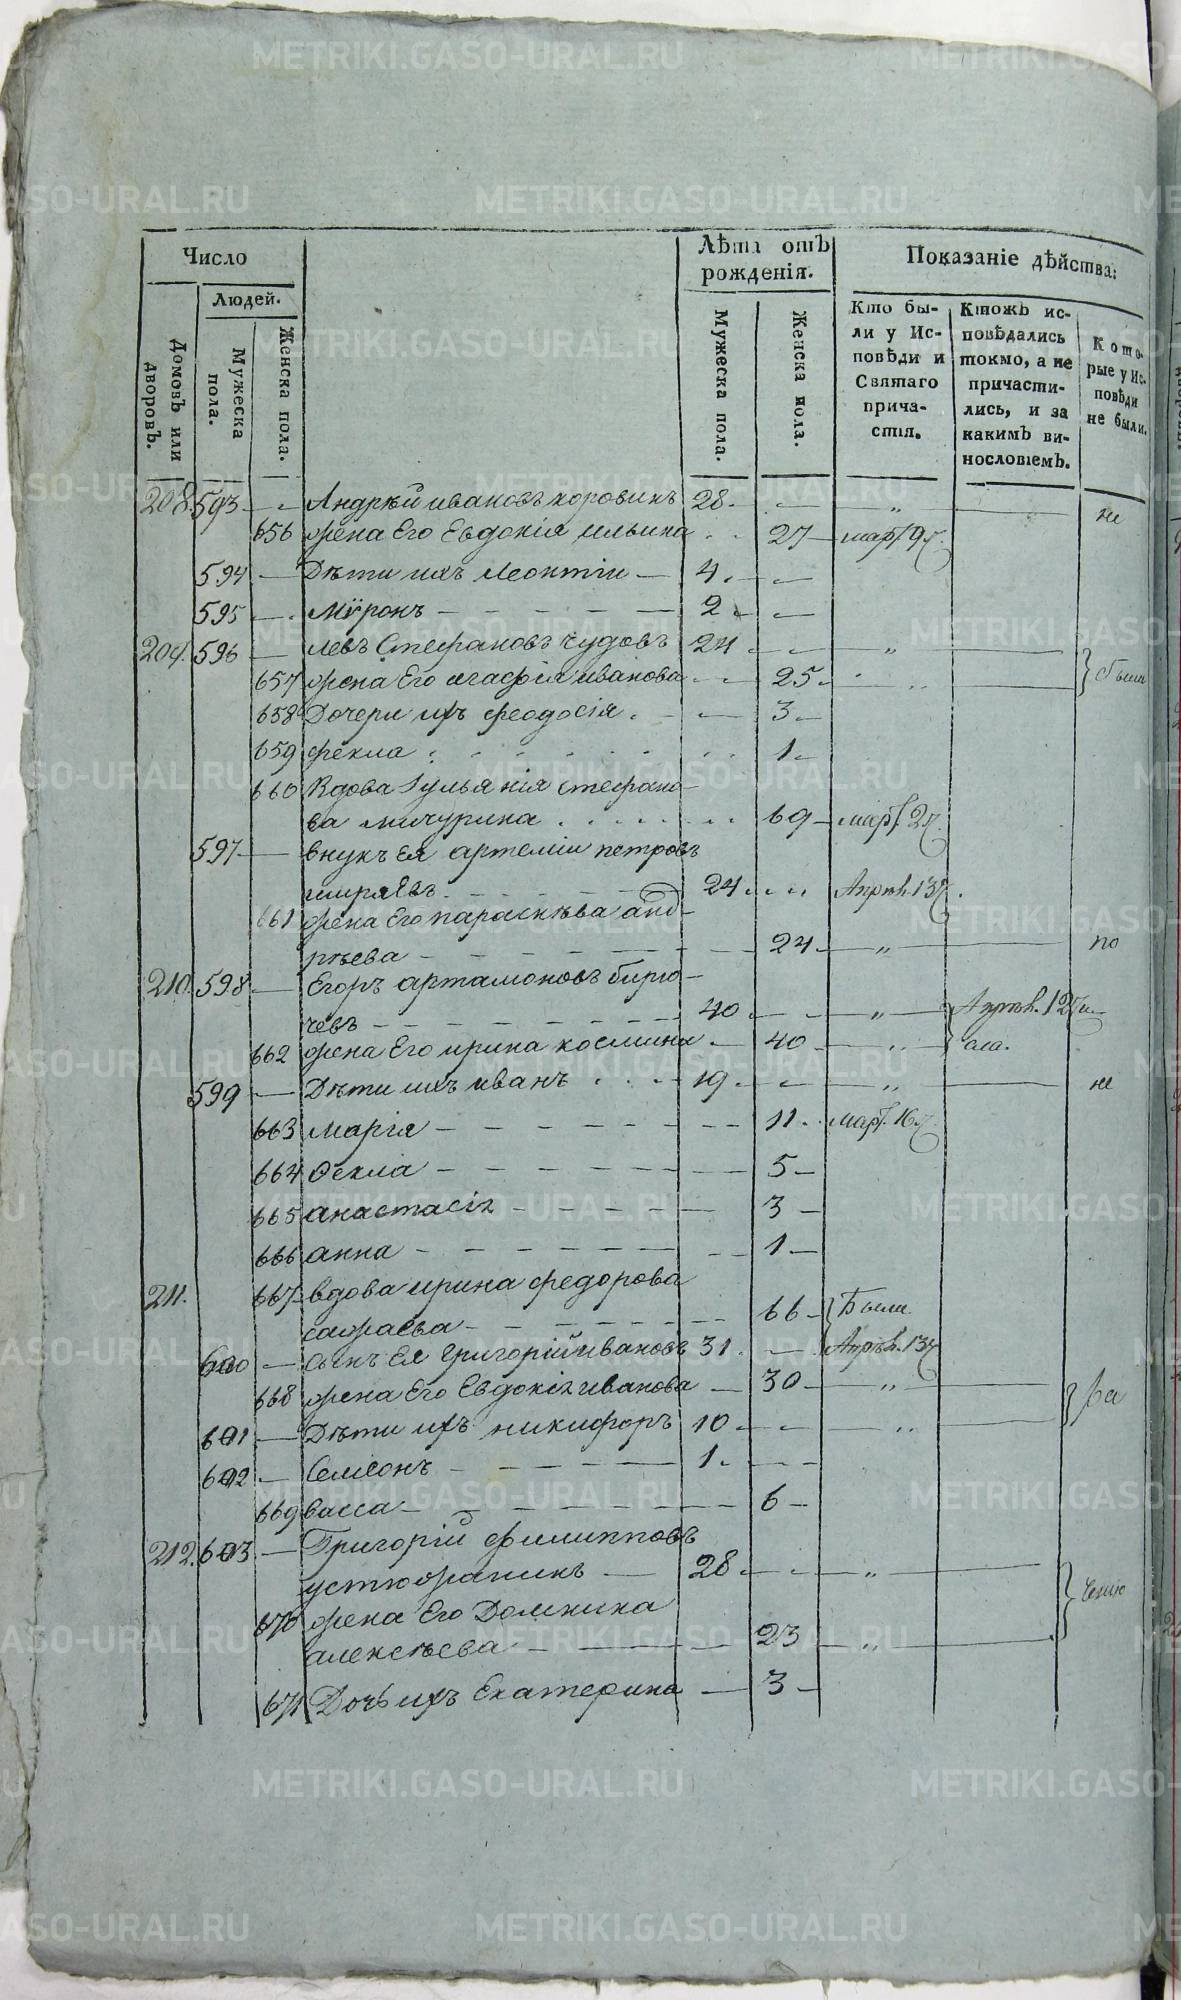 METRIKI.GASO-URAL.RU
Число
Лѣта отъ рожденія.
Показаніе дѣйства:
Людей.
Домовъ или дворовъ.
Мужеска пола.
Женска пола.
Мужеска пола.
Женска пола.
Кто бы-
ли у Ис-
повѣди и
Святаго
прича-
стія.
Ктожъ ис-
повѣдались
токмо, а не
причасти-
лись, и за
какимъ ви-
нословіемъ.
Кото-
рые у Ис-
повѣди
не были.
208. 593 — Андрѣй Ивановъ Коровинъ 28. — „ — не
656 жена Его Евдокія Ильина 27 — март. 9
594 — Дѣти ихъ Леонтіи — 4. —
595 — Мѵронъ — 2 —
209. 596 — Левъ Стефановъ Чудовъ 24 — „ —
657 жена Его Агафія Иванова — 25 — „ — } были
658 Дочери ихъ Феодосія — 3 —
659 фекла 1 —
660 Вдова Іульянія Стефано-
ва Мичурина 69 — март. 2
597 — внукъ Ея Артеміи Петровъ
24 Апрѣл. 13
661 жена Его параскѣва анд-
рѣева — 24 — „ — по
210. 598 — Егоръ Артамоновъ Бирю-
чевъ — 40 — „ — } Апрѣл. 12
662 жена Его Ирина Космина — 40 — „
599 — Дѣти ихъ Иванъ 19. — „ — не
663 Марія — 11. март. 16
664 Ѳекла — 5 —
665 Анастасія — 3 —
666 Анна — 1 —
211. 667 вдова Ирина Федорова
66 — } Были
600 — сынъ Ея Григорій Ивановъ 31. — Апрѣл. 13
668 жена Его Евдокія Иванова — 30 — „ — } ра
601 — Дѣти ихъ Никифоръ 10 — „ —
602 — Симеонъ — 1. —
669 Васса — 6 —
212. 603 — Григорій Филипповъ
Устюжанинъ — 28 — „ —
670 жена Его Домнина
Алексѣева — 23 — „ — } чению
671 Дочь ихъ Екатерина — 3 —